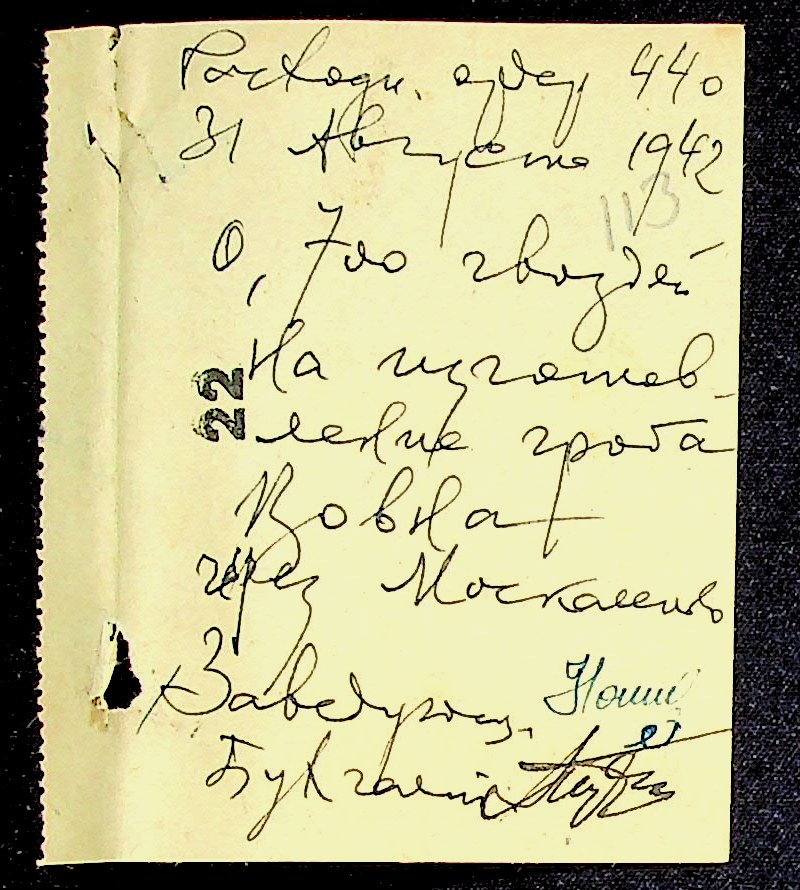 Расходн. ордер 440
31 Августа 1942
113
0,700 гвоздей
На изготов-
22
ление гроба
Вовна
через Москаленко
Заведующ.
Бухгалтер